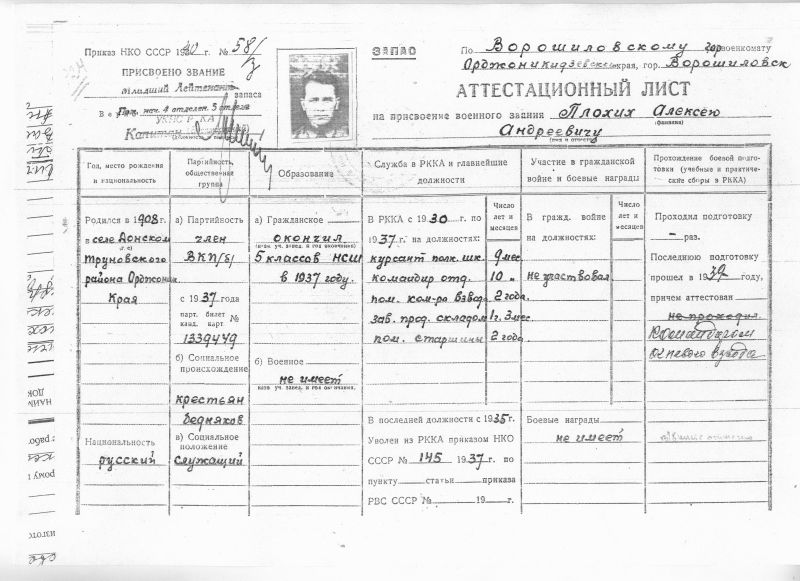 Приказ НКО СССР 1940 г. № 58/з
ПРИСВОЕНО ЗВАНИЕ
Младший Лейтенант
запаса
Пом. нач. 4 отделен. 5 отдела
УКНС РККА
Капитан
ЗАПАС
По Ворошиловскому гор военкомату
Орджоникидзевского края, гор. Ворошиловск
АТТЕСТАЦИОННЫЙ ЛИСТ
на присвоение военного звания Плохих Алексею
(фамилия)
Андреевичу
(имя и отчество)
Год, место рождения
и национальность
Родился в 1908 г.
в селе Донском
Труновского
района Орджоник.
Края
Национальность
русский
Партийность,
общественная
группа
а) Партийность
член
ВКП/б/
с 1937 года
парт. билет
канд. карт. №
1339449
б) Социальное
происхождение
крестьян
бедняков
в) Социальное
положение
служащий
Образование
а) Гражданское
окончил
(наим. уч. завед. и год окончания)
5 классов НСШ
в 1937 году.
б) Военное
не имеет
(наим. уч. завед. и год окончания)
Служба в РККА и главнейшие
должности
Число
лет и
месяцев
В РККА с 1930 г. по
1937 г. на должностях:
курсант полк. шк. 9 мес.
командир отд. 10 "
пом. ком-ра взвода 2 года.
зав. прод. складом 1 г. 3 мес.
пом. старшины 2 года.
В последней должности с 1935 г.
Уволен из РККА приказом НКО
СССР № 145 1937 г. по
пункту статьи приказа
РВС СССР № 19 г.
Участие в гражданской
войне и боевые награды
Число
лет и
месяцев
В гражд. войне
на должностях:
не участвовал.
Боевые награды
не имеет
Прохождение боевой подго-
товки (учебные и практиче-
ские сборы в РККА)
Проходил подготовку
– раз.
Последнюю подготовку
прошел в 1939 году,
причем аттестован
не проходил.
Командиром
огневого взвода